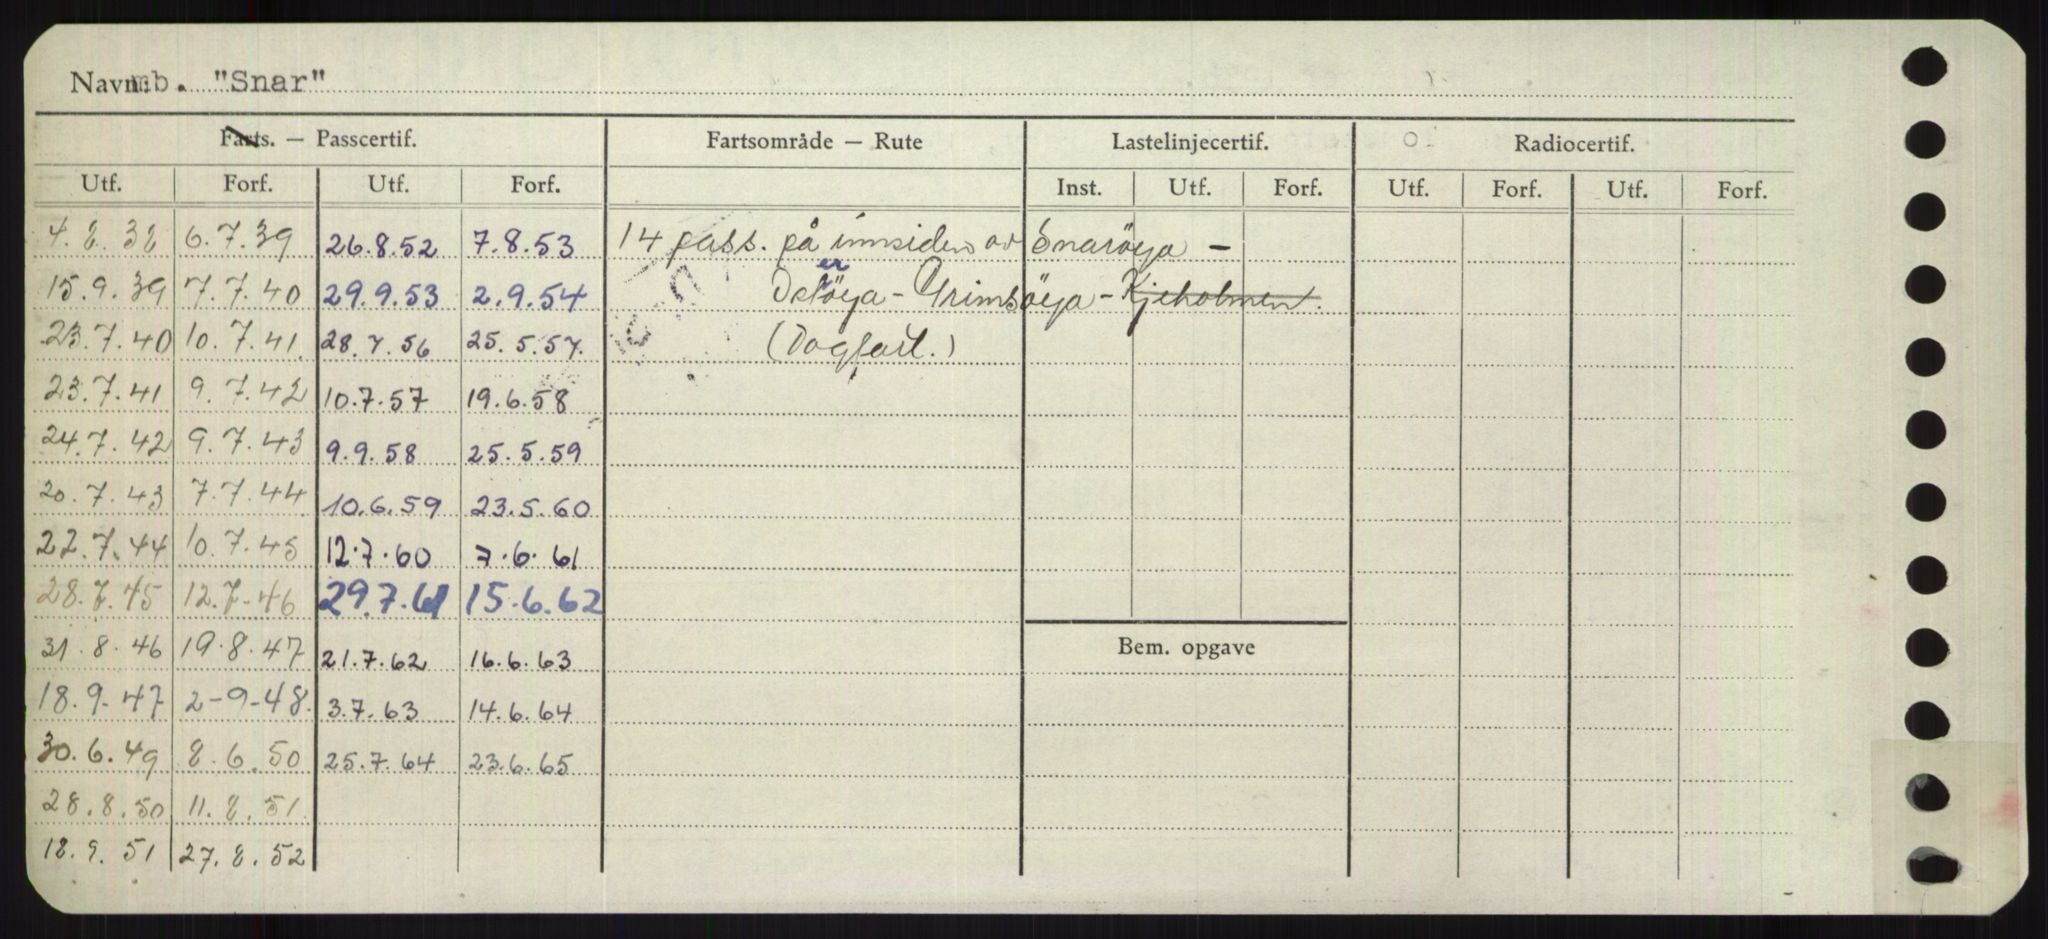 Navn: mb. "Snar"
Farts. — Passcertif. Fartsområde — Rute Lastelinjecertif. Radiocertif.
Utf. Forf. Utf. Forf. Inst. Utf. Forf. Utf. Forf. Utf. Forf.
4.8.38 6.7.39 26.8.52 7.8.53 14 pass. på innsiden av Snaröya -
15.9.39 7.7.40 29.9.53 2.9.54 Ostöya - Grimsöya - Kjeholmen.
23.7.40 10.7.41. 28.7.56 25.5.57. (Dagfart.)
23.7.41 9.7.42 10.7.57 19.6.58
24.7.42 9.7.43 9.9.58 25.5.59
20.7.43 7.7.44 10.6.59 23.5.60
22.7.44 10.7.45 12.7.60 7.6.61
28.7.45 12.7-46 29.7.61 15.6.62
31.8.46 19.8.47 21.7.62 16.6.63
Bem. opgave
18.9.47 2-9-48. 3.7.63 14.6.64
30.6.49 8.6.50 25.7.64 23.6.65
28.8.50 11.8.51.
18.9.51 27.8.52